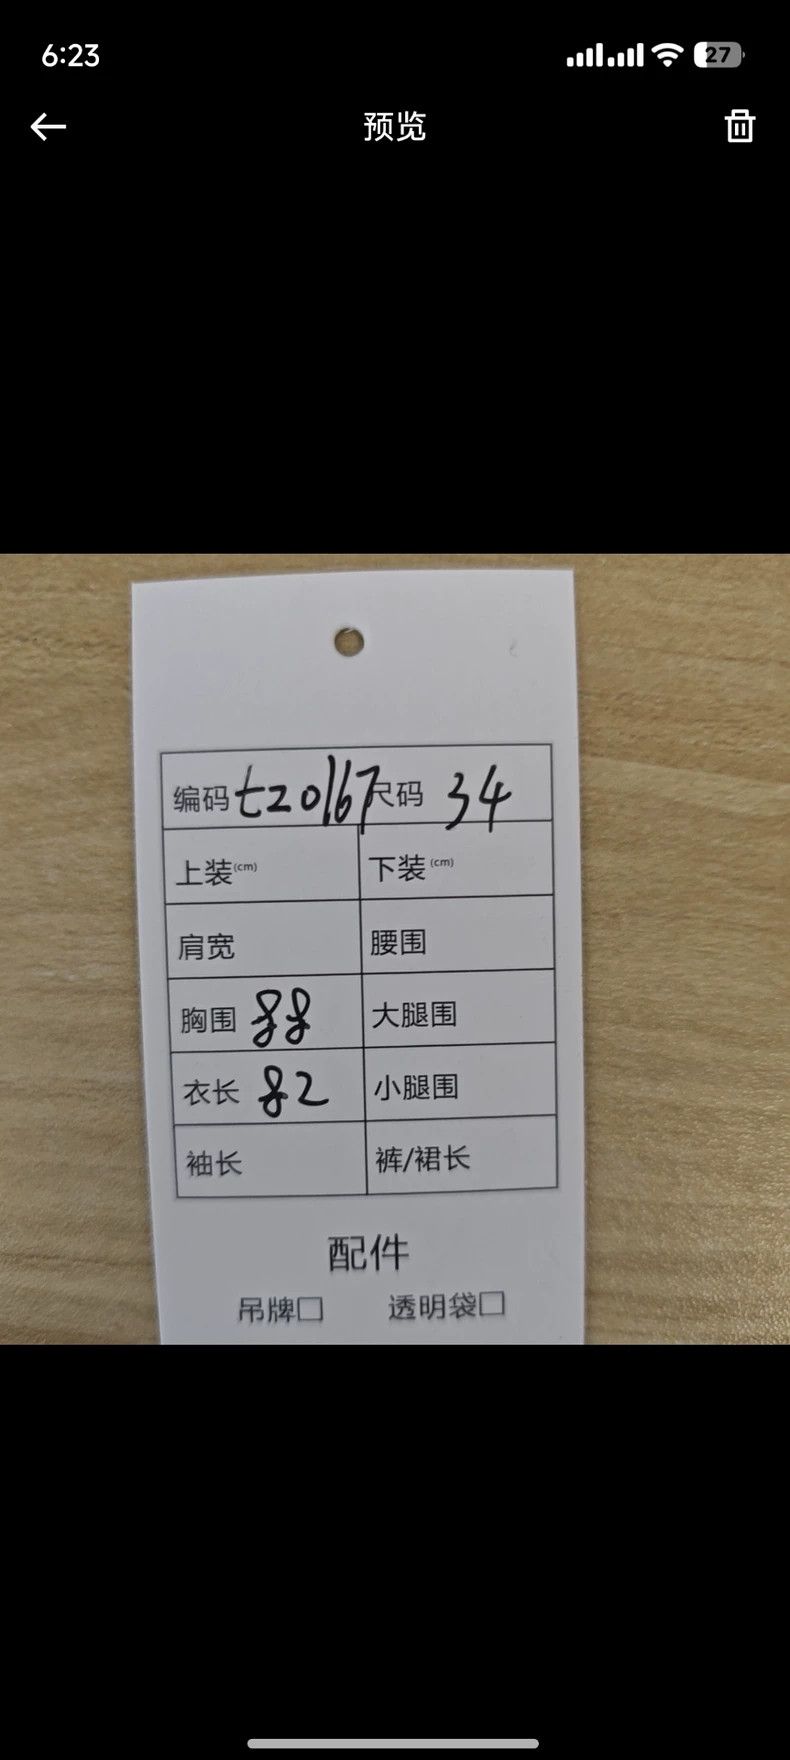 6:23 27
预览
编码 tz0167 尺码 34
上装(cm) 下装(cm)
肩宽 腰围
胸围 88 大腿围
衣长 82 小腿围
袖长 裤/裙长
配件
吊牌□ 透明袋□